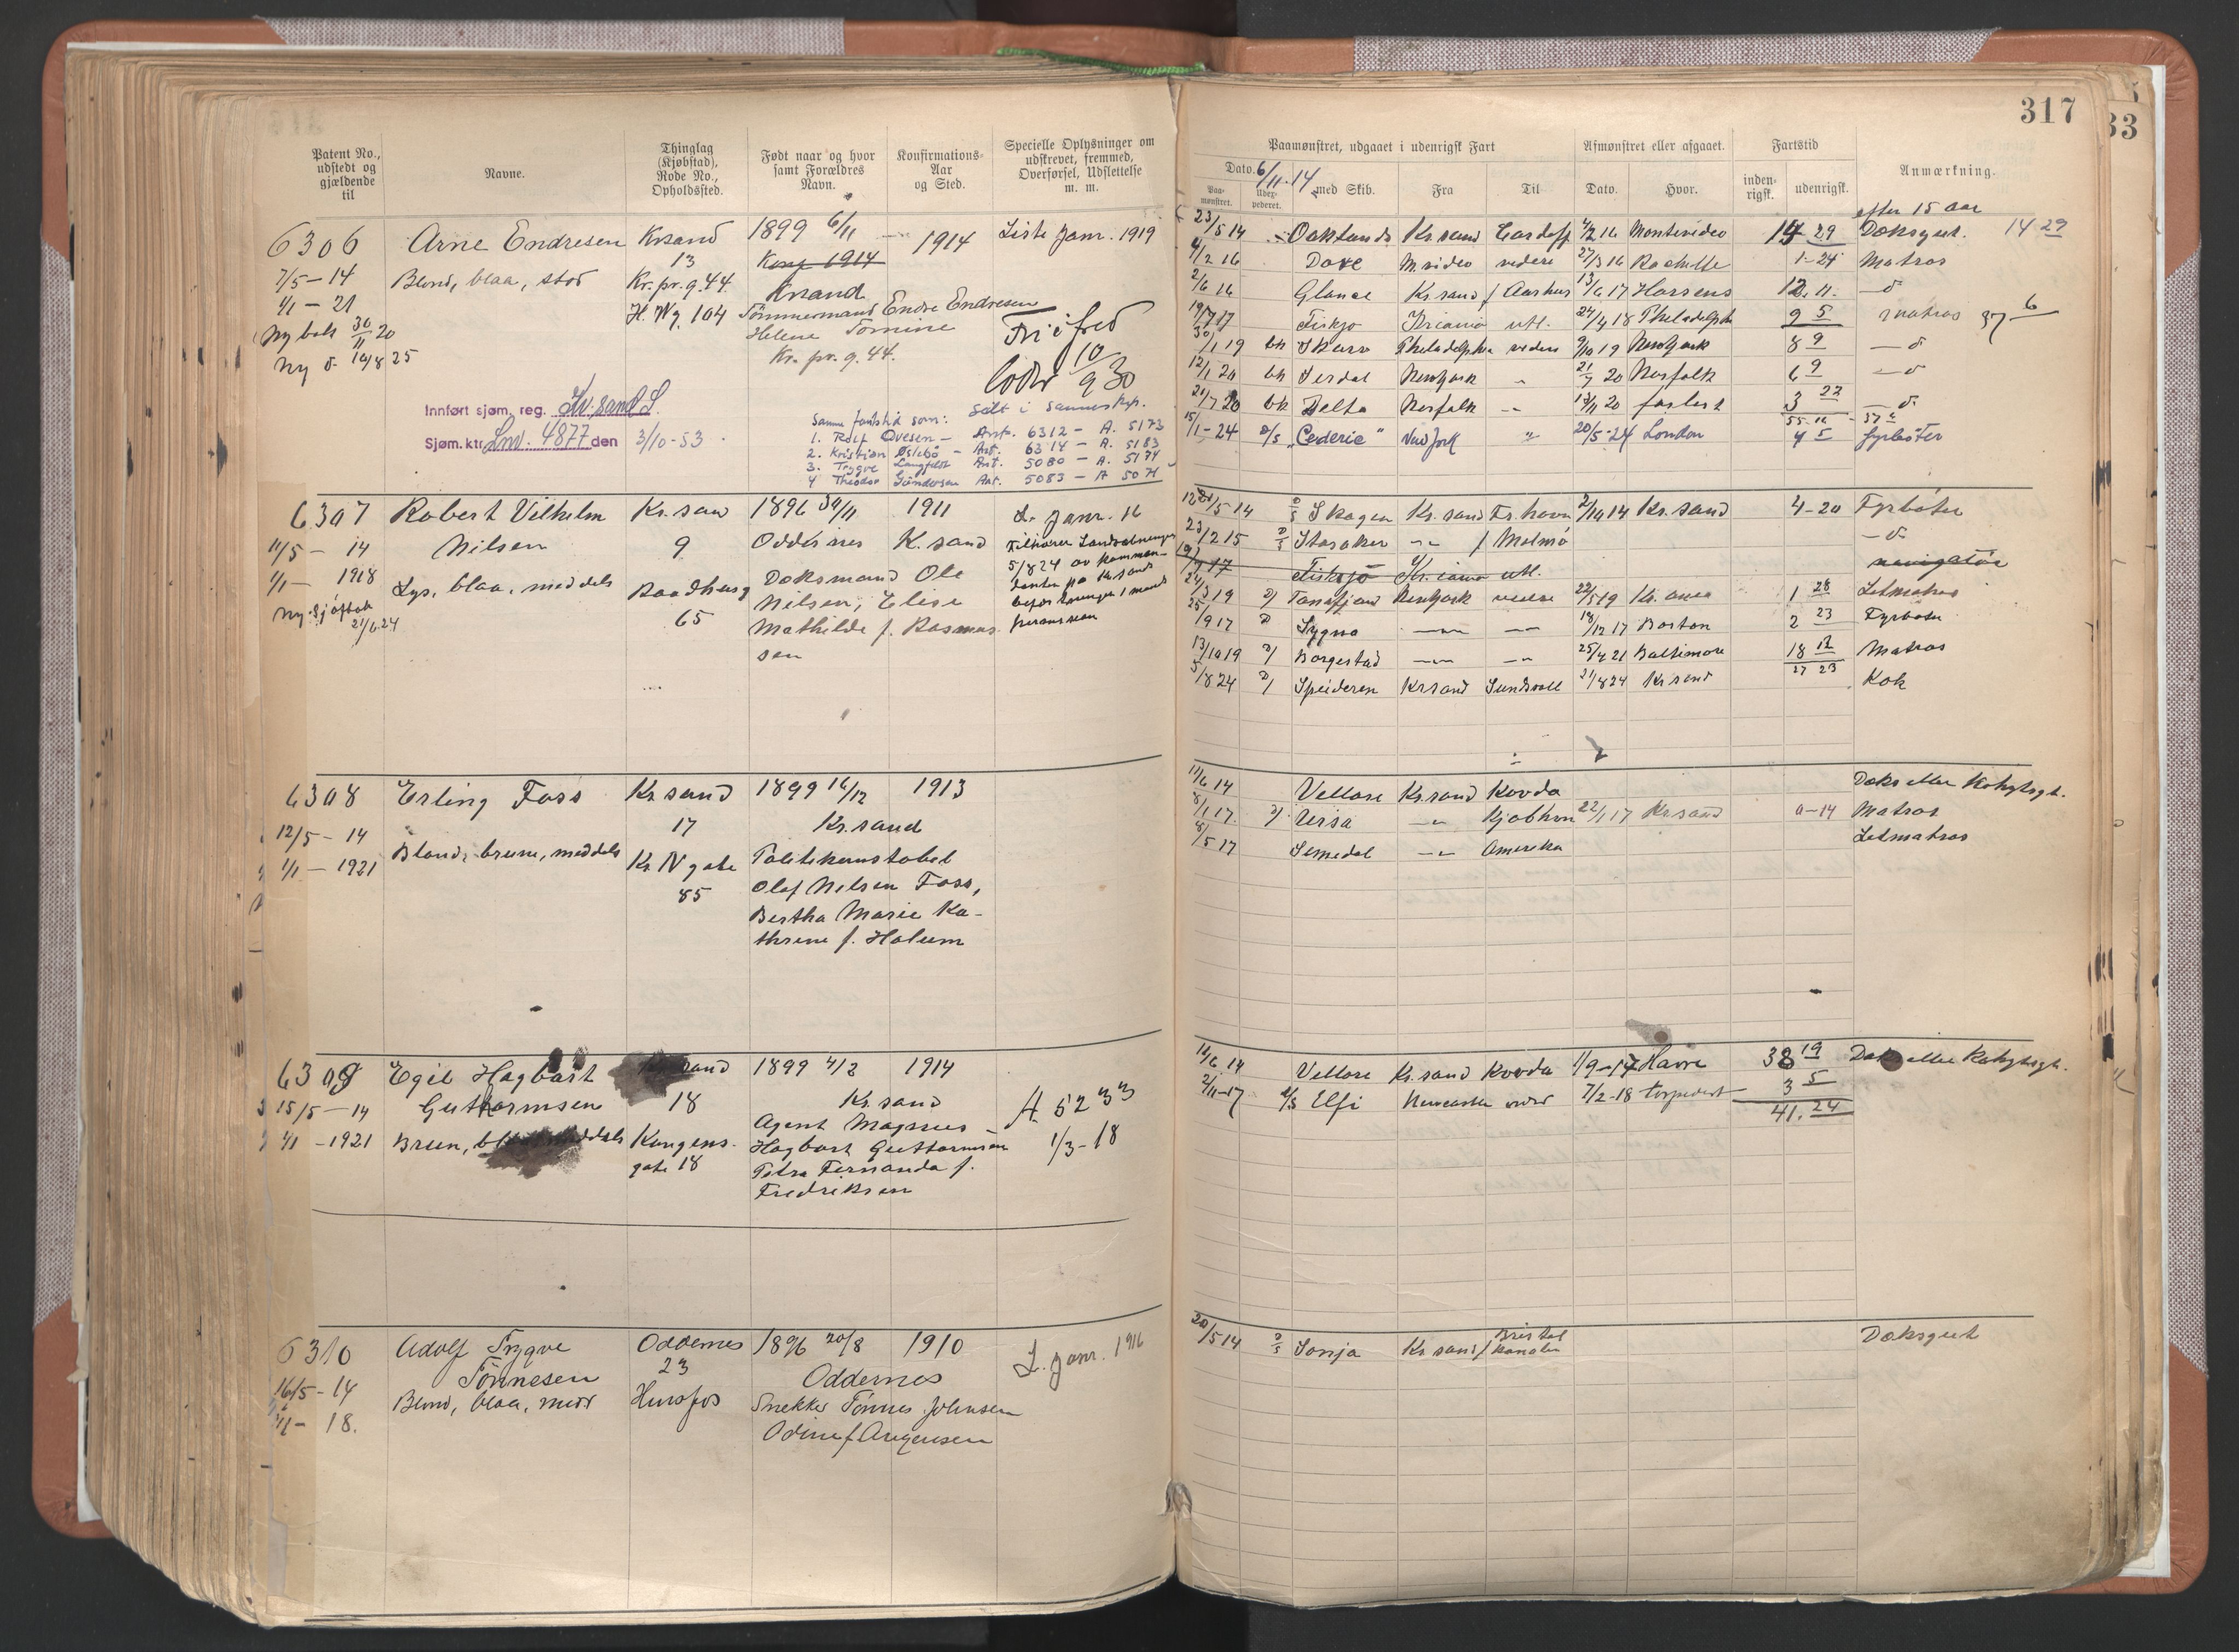 317
33
Patent No., udstedt og gjældende til
Navne.
Thinglag (Kjøbstad), Rode No., Opholdssted.
Født naar og hvor samt Forældres Navn.
Konfirmations-Aar og Sted.
Specielle Oplysninger om udskrevet, fremmed, Overførsel, Udslettelse m. m.
Paamønstret, udgaaet i udenrigsk Fart
Afmønstret eller afgaaet.
Fartstid
Anmærkning.
Dato. 6/11-14
Paamønstret.
Udexpederet.
med Skib.
Fra
Til
Dato.
Hvor.
indenrigsk.
udenrigsk.
6306 Arne Endresen Krsand 1899 6/11 — 1914 Liste Janr. 1919
7/5-14 Blond, blaa, stor 13 Konf 1914
1/1-21 Kr. pr. g. 44 Krsand
H. Wg. 104 Tømmermand Endre Endresen
Ny bok 30/11 20 Helene Tomine
Ny d. 19/8 25 Kr. pr. g. 44.
Fri i fred
10/9 30
Innført sjøm. reg. Kr.sand S.
Sjøm.ktr. Lnr. 4877 den 3/10-53
Samme fartstid som: Selt i Sannes Kp.
1. Rolf Ovesen — Ant. 6312 — A. 5173
2. Kristian Øslebø — Ant. 6314 — A. 5183
3. Trygve Langfeldt Ant. 5080 — A. 5174
4 Theodor Gundersen Ant. 5083 — A 5071
efter 15 aar
23/5 14 Oaklands Kr.sand Cardiff 4/2 16 Montevideo 14 29 Dæksgut. 14 29
4/2 16 Dove M.video videre 27/3 16 Rochelle 1-24 Matros
2/6 16 Glance Kr.sand / Aarhus 13/6 17 Horsens 12. 11. — d
19/7 17 Fiskjø Kriania utl. 24/4 18 Pheladelph 9 5 Matros 37 6
30/1 19 bk Skarv Pheladelphia videre 9/10 19 NewYork 8 9 — d
12/1 20 bk Serdal NewYork " 21/7 20 Norfolk 6 9 — d
21/7 20 bk Delta Norfolk " 13/11 20 forlist 3 22 — d
15/1-24 D/S "Cederic" NewYork " 20/5-24 London 4 5 fyrbøter
6307 Robert Vilhelm Kr.san 1896 30/11 1911 L. Janr. 16
11/5 - 14 Nilsen 9 Oddernes K.sand
1/1 - 1918 Lys, blaa, middels Raadhusg 65
Dæksmand Ole
Nilsen, Elise
Mathilde f. Rasmus-
sen
Ny Sjøfbok 21/6 24
12/5 14 D/S Skagen Kr.sand Fr.havn 2/10 14 Kr.sand 4-20 Fyrbøter
23/2 15 D/S Staraker " / Malmø — d.
19/7 17 Fiskjø Kr.iania utl. navigatør
24/3 19 D/ Tanafjord NewYork videre 22/5 19 Kr.ania 1 28 Letmatros
25/9 17 D Sygna " " 18/12 17 Boston 2 23 Fyrbøter
13/10 19 D/ Borgestad " " 25/4 21 Baltimore 18 12 Matros
27 23
5/8 24 D/ Speideren Krsand Sundsvall 21/8 24 Kr.sand Kok
6308 Erling Foss Kr.sand 1899 16/12 1913
12/5 - 14 17 Kr.sand
Blond, brune, middels
1/1 - 1921 Kr. IV gate 85
Politikonstabel
Olaf Nilsen Foss,
Bertha Marie Ka-
thrine f. Holum
11/6 14 Vellore Kr.sand Kovda Dæks eller Kahytsgt.
8/1 17. D/ Ursa " Kjøbhvn 22/1 17 Kr.sand 0-14 Matros
8/5 17 Semedal " Amerika Letmatros
6309 Egil Hagbart Kr.sand 1899 4/2 1914
Guttormsen 18 Kr.sand A 5233
15/5 - 14 Agent Magnus 1/3-18
1/1 - 1921 Brun, middels Kongens-
gate 18 Hagbart Guttormsen
Petra Fernanda f.
Fredriksen
14/6 14 Vellore Kr.sand Kovda 1/9-17 Havre 38 19 Dæks eller Kahytsgt.
2/11-17 D/S Elfi Newcastle videre 7/2-18 torpedert 3 5
41. 24
6310 Adolf Trygve Oddernes 1896 20/8 1910 L. Janr. 1916
Tönnesen 23 Oddernes
16/5 - 14 Blond, blaa, midd Hunsfos Snekker Tönnes Johnsen
1/1 - 18. Odine f. Aagensen
20/5 14 D/S Sonja Kr.sand / Bristol kanalen Dæksgut